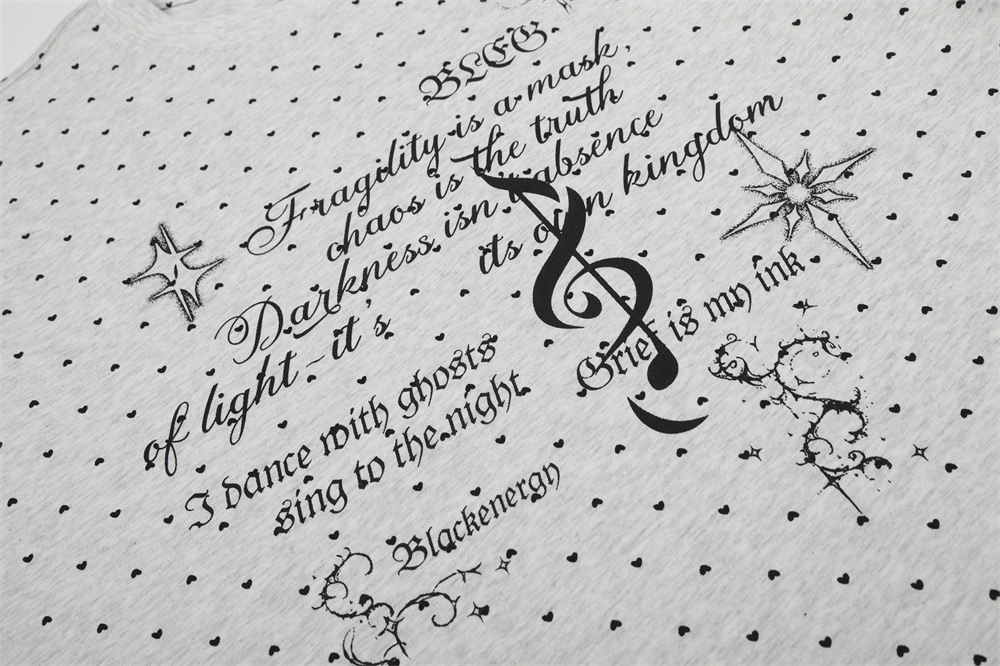 BLEG
Fragility is a mask,
chaos is the truth
Darkness isn't absence
of light – it's its own kingdom
I dance with ghosts
sing to the night
Grief is my ink
Blackenergy